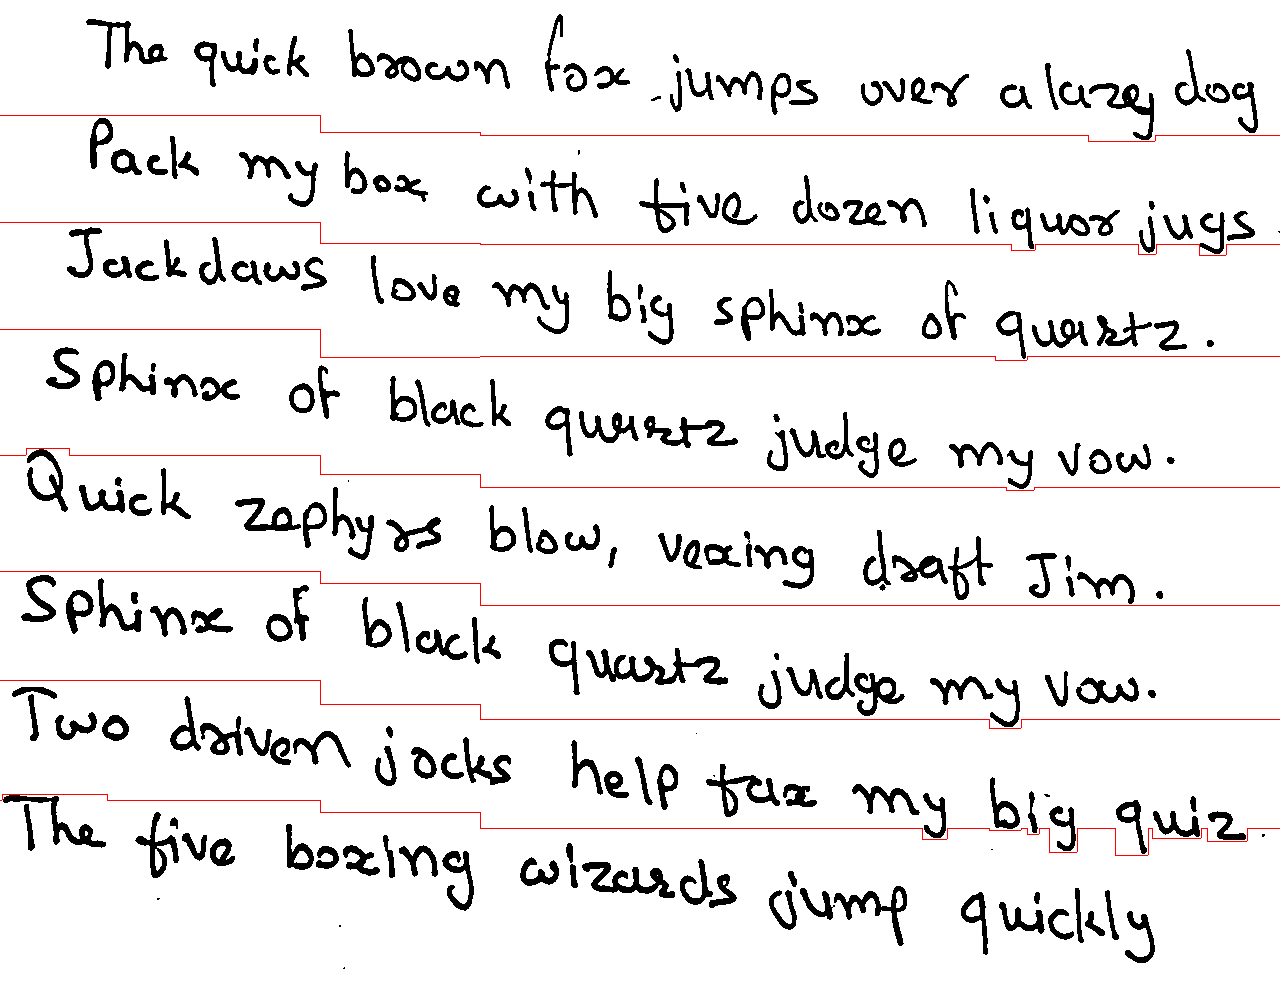 The quick brown fox jumps over a lazy dog
Pack my box with five dozen liquor jugs.
Jackdaws love my big sphinx of quartz.
Sphinx of black quartz judge my vow.
Quick zephyrs blow, vexing draft Jim.
Sphinx of black quartz judge my vow.
Two driven jocks help fax my big quiz.
The five boxing wizards jump quickly